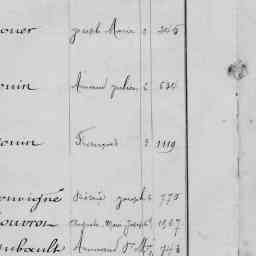 ouer Joseph Marie 2 245
ouin Armand Julien 2 634
ouin François 3 1119
ouvigné Désiré Joseph 775
ouvron Auguste Marie Joseph 1567
mbault Armand 743